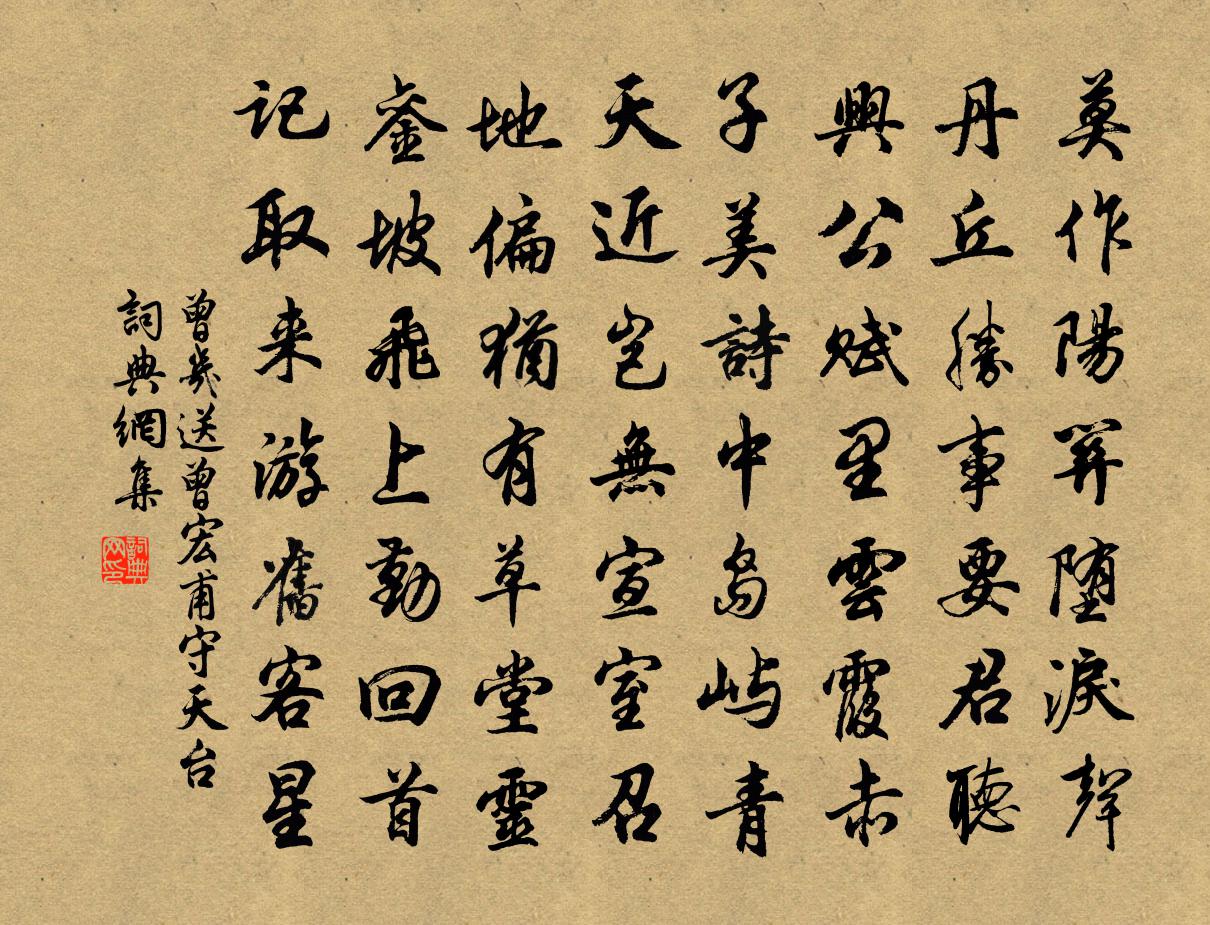 莫作陽關墮淚聲
丹丘勝事要君聽
興公賦里雲霞赤
子美詩中島嶼青
天近豈無宣室召
地偏猶有草堂靈
鑾坡飛上勤回首
記取来游舊客星
曾幾送曾宏甫守天台
詞典網集
詞典网印